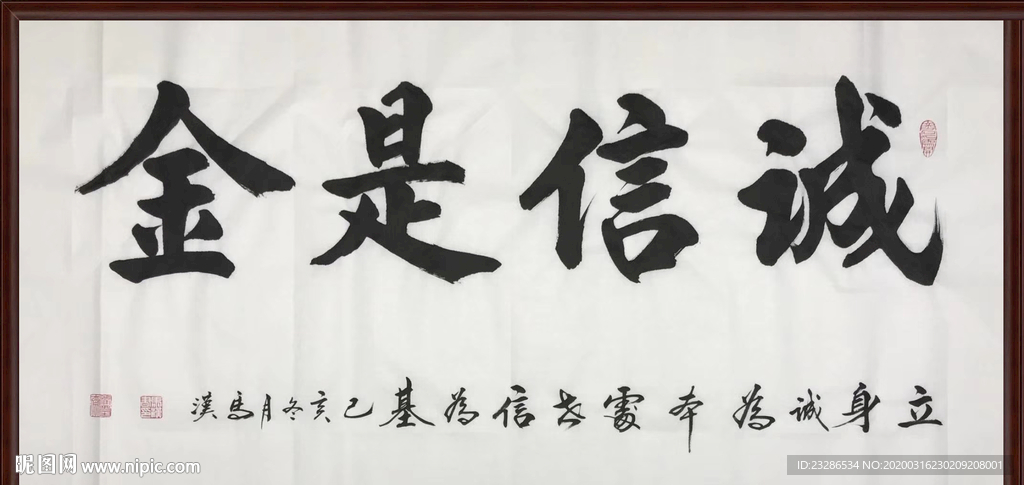 誠信是金
立身誠為本處世信為基己亥冬月馬漢
昵图网 www.nipic.com
ID:23286534 NO:20200316230209208001